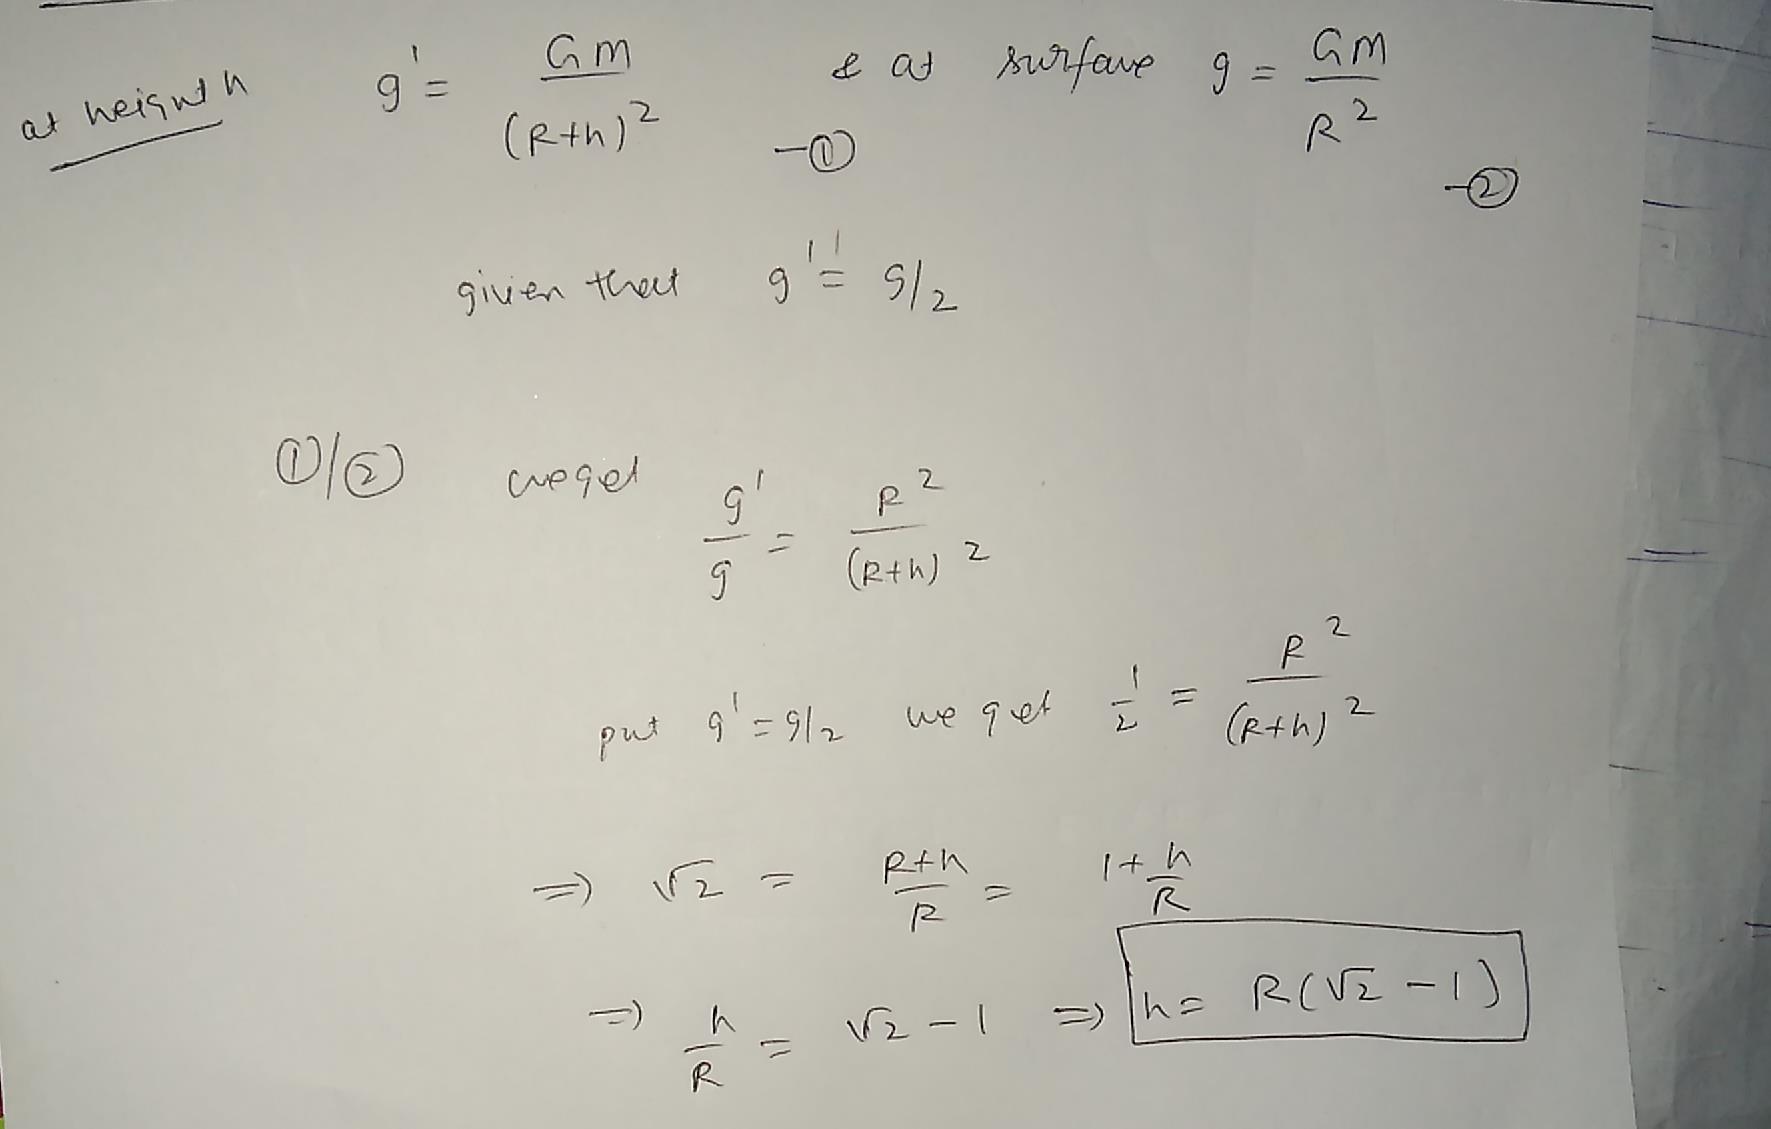 at height h g' = GM / (R+h)² –① & at surface g = GM / R² –②
given that g' = g/2
①/② we get g'/g = R² / (R+h)²
put g' = g/2 we get 1/2 = R² / (R+h)²
=> √2 = R+h / R = 1 + h/R
=> h/R = √2 - 1 => h = R(√2 - 1)